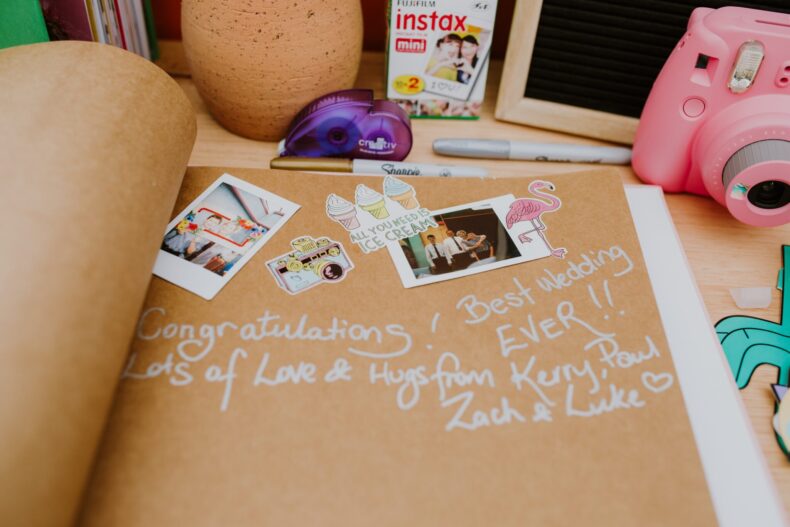 FUJIFILM
instax
mini
10×2
creativ
Sharpie
Sharpie
ALL YOU NEED IS
ICE CREAM
Congratulations! Best Wedding
EVER!!
Lots of Love & Hugs from Kerry, Paul
Zach & Luke